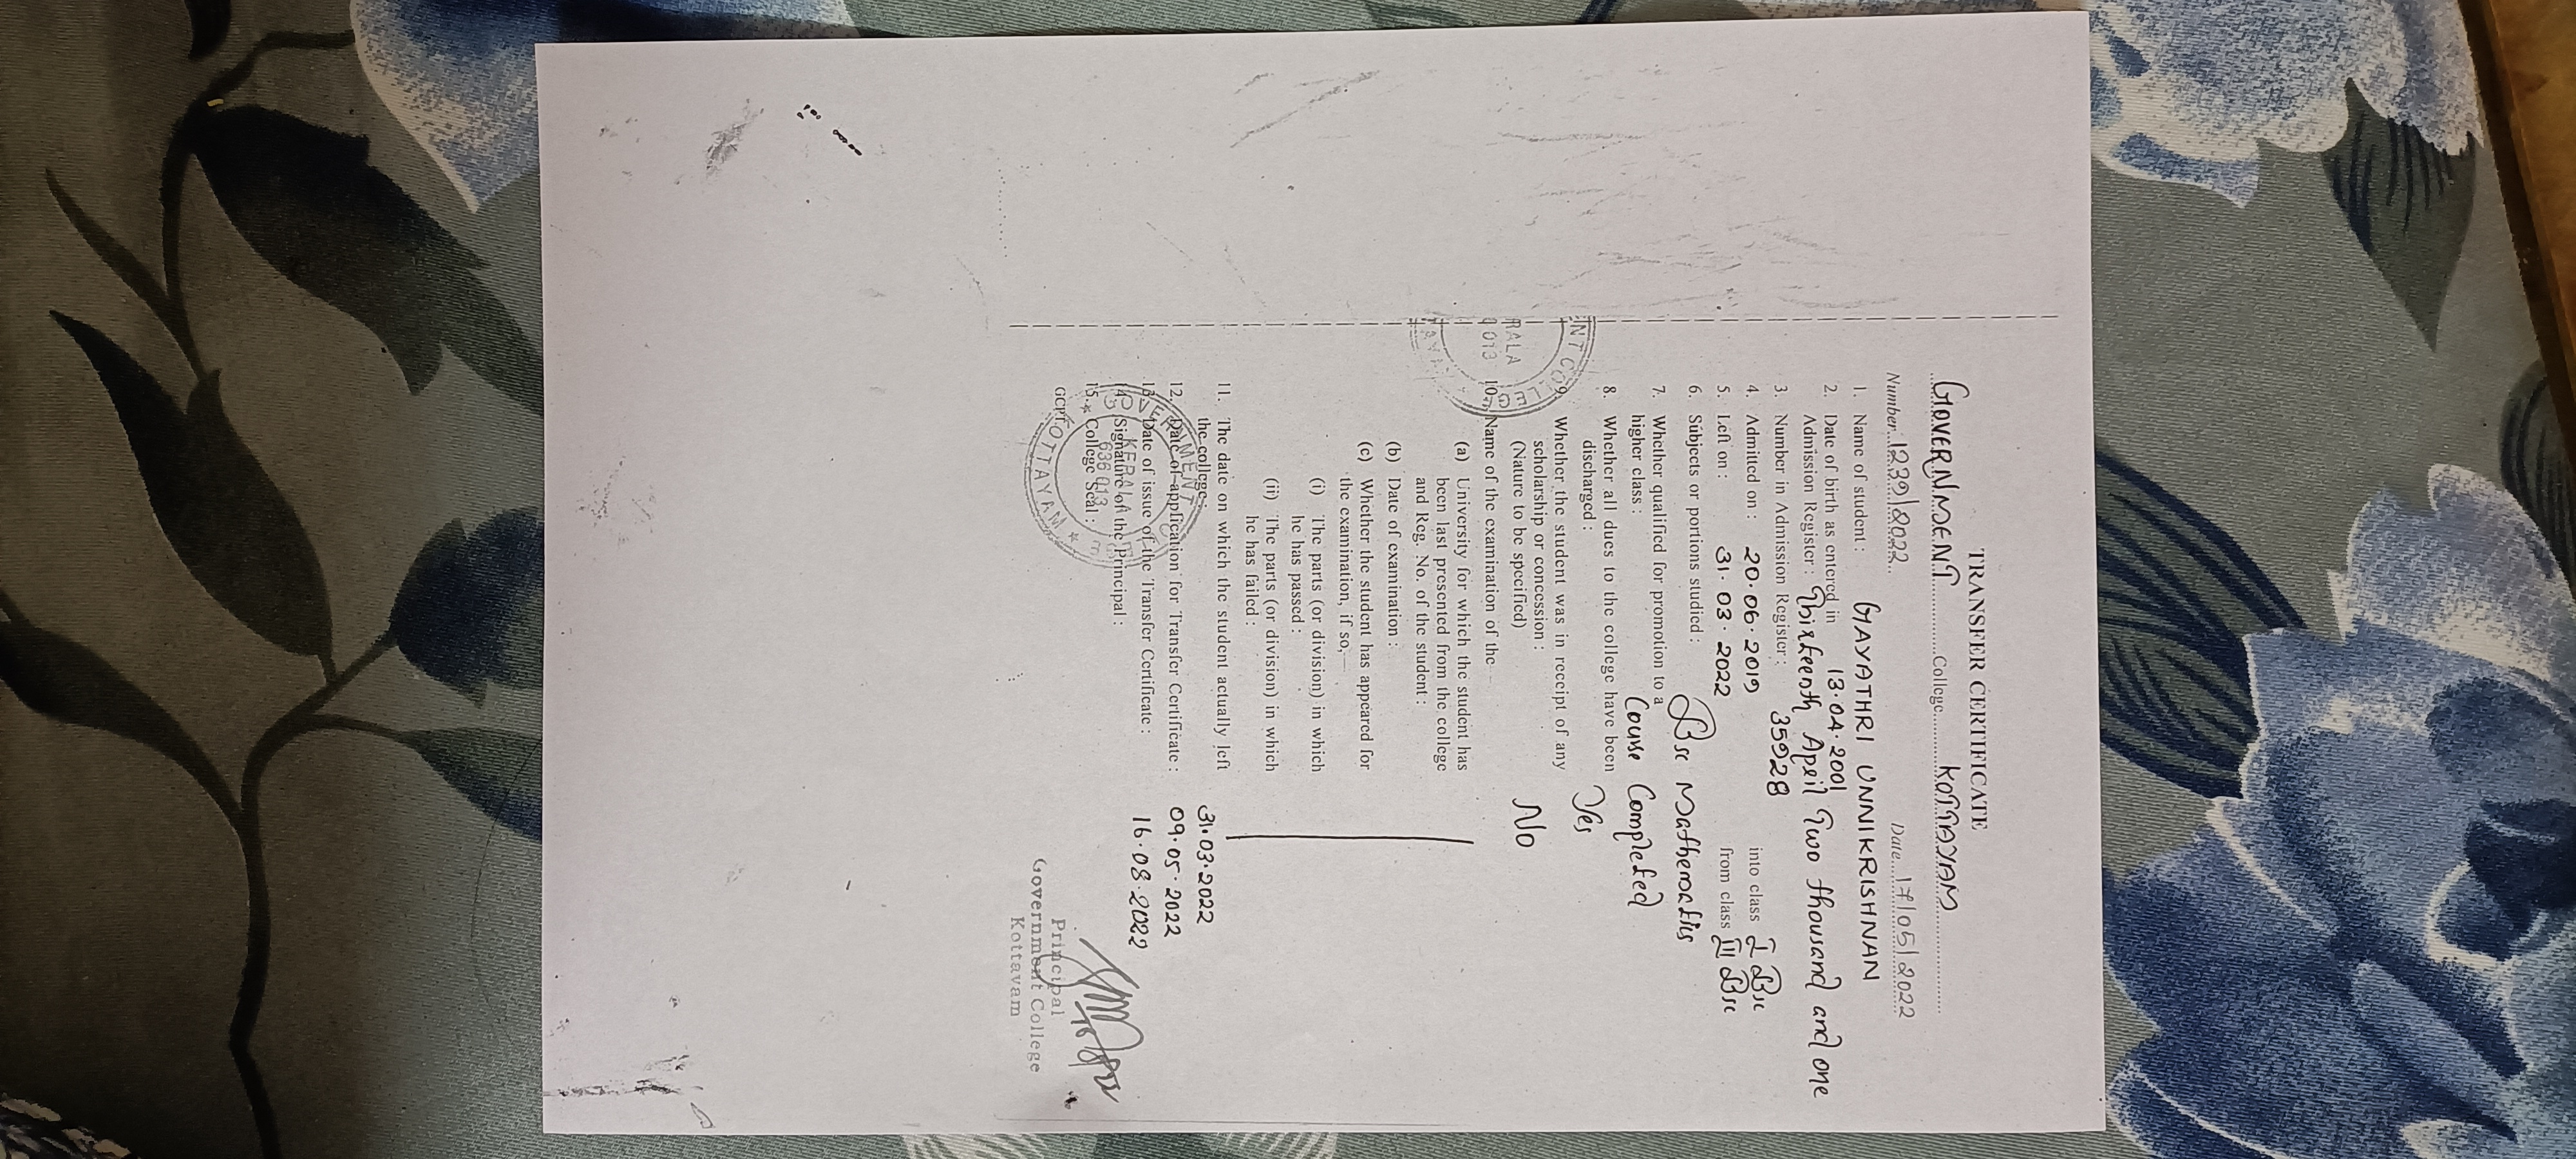 TRANSFER CERTIFICATE
GOVERNMENT College KOTTAYAM
Number 1239/2022 Date 17/05/2022
1. Name of student : GAYATHRI UNNIKRISHNAN
2. Date of birth as entered in 13.04.2001
Admission Register : Thirteenth April Two thousand and one
3. Number in Admission Register : 35928
4. Admitted on : 20.06.2019 into class I Bsc
5. Left on : 31.03.2022 from class III Bsc
6. Subjects or portions studied : Bsc Mathematis
7. Whether qualified for promotion to a
higher class : Couse Completed
8. Whether all dues to the college have been
discharged : Yes
9. Whether the student was in receipt of any
scholarship or concession :
(Nature to be specified) No
10. Name of the examination of the —
(a) University for which the student has
been last presented from the college
and Reg. No. of the student :
(b) Date of examination :
(c) Whether the student has appeared for
the examination, if so,—
(i) The parts (or division) in which
he has passed :
(ii) The parts (or division) in which
he has failed :
11. The date on which the student actually left
the college : 31.03.2022
12. Date of application for Transfer Certificate : 09.05.2022
13. Date of issue of the Transfer Certificate : 16.08.2022
14. Signature of the Principal :
15. College Seal :
GCPT
Principal
Government College
Kottayam
NT COLLEGE
RALA
013
TAYA
GOVERNMENT
KERALA
636 013
KOTTAYAM